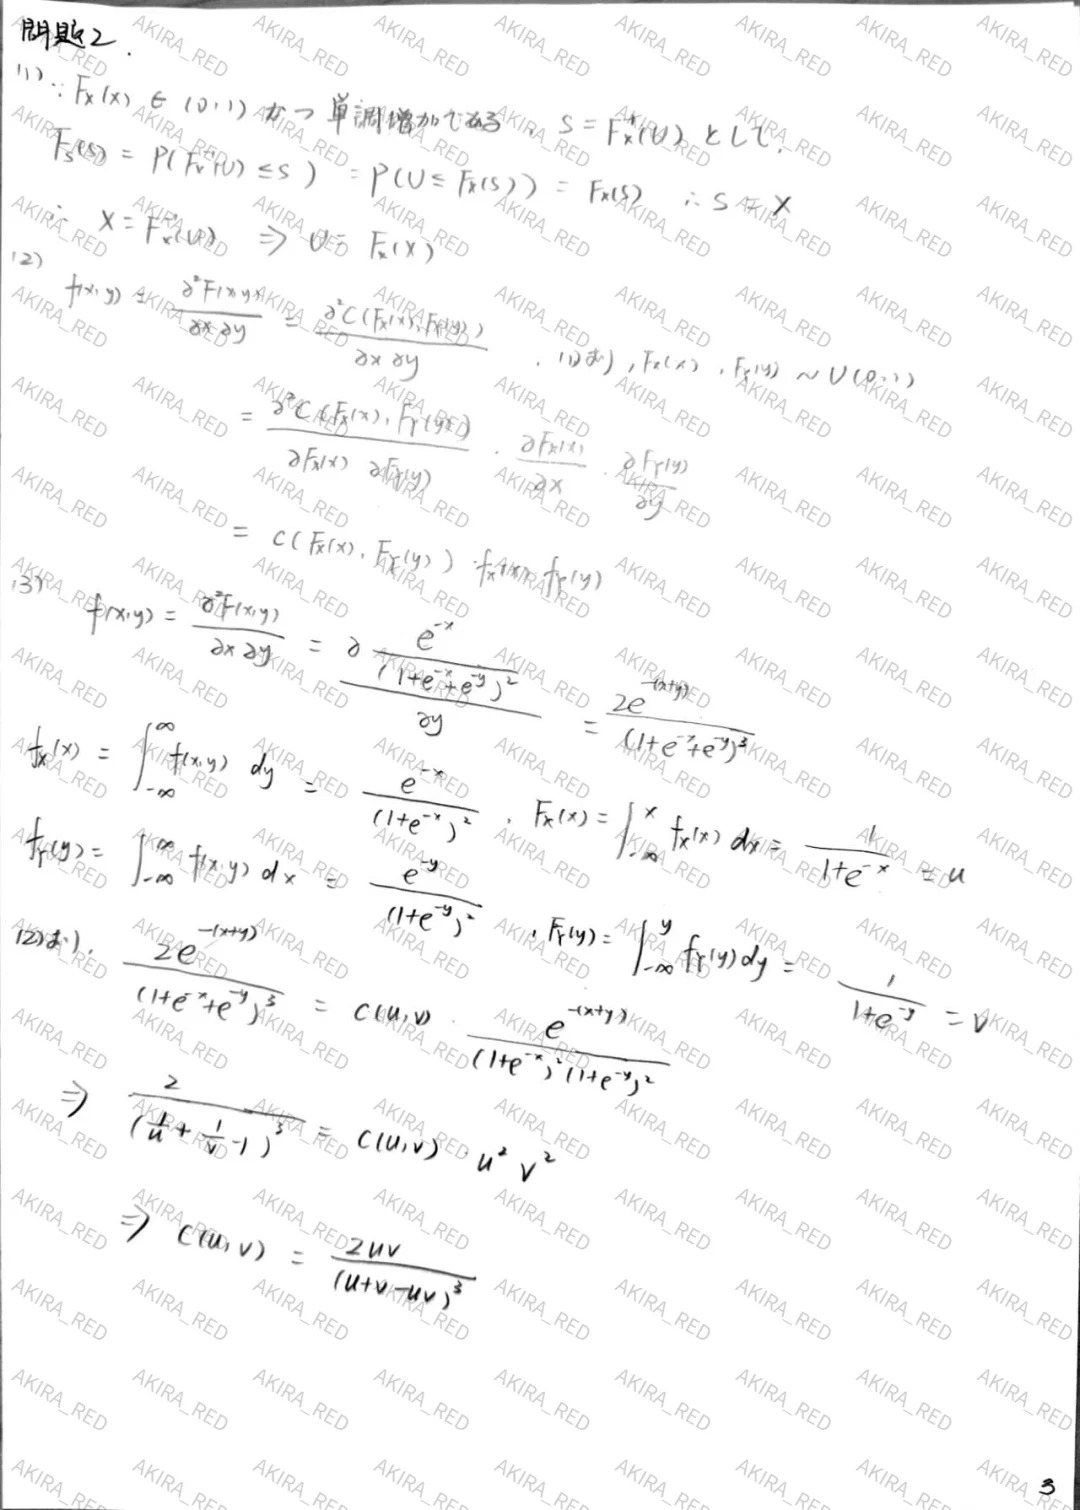 問題2.
(1) ∵ Fx(x) ∈ (0,1) かつ 単調増加である, S = Fx⁻¹(U) として,
Fs(s) = P(Fx⁻¹(U) ≤ s) = P(U ≤ Fx(s)) = Fx(s) ∴ S = X
∴ X = Fx⁻¹(U) ⇒ U = Fx(X)
(2) f(x,y) = ∂²F(x,y)/∂x∂y = ∂²C(Fx(x), FY(y))/∂x∂y , (1)より, Fx(x), FY(y) ~ U(0,1)
= ∂²C(Fx(x), FY(y))/∂Fx(x) ∂FY(y) · ∂Fx(x)/∂x · ∂FY(y)/∂y
= C(Fx(x), FY(y)) · fx(x) · fY(y)
(3) f(x,y) = ∂²F(x,y)/∂x∂y = ∂ e^-x/(1+e^-x+e^-y)² / ∂y = 2e^-(x+y)/(1+e^-x+e^-y)³
fx(x) = ∫_-∞^∞ f(x,y) dy = e^-x/(1+e^-x)² , Fx(x) = ∫_-∞^x fx(x) dx = 1/(1+e^-x) = u
fY(y) = ∫_-∞^∞ f(x,y) dx = e^-y/(1+e^-y)² , FY(y) = ∫_-∞^y fY(y) dy = 1/(1+e^-y) = v
(2)より, 2e^-(x+y)/(1+e^-x+e^-y)³ = C(u,v) · e^-(x+y)/(1+e^-x)²(1+e^-y)²
⇒ 2/(1/u + 1/v - 1)³ = C(u,v) · u² v²
⇒ C(u,v) = 2uv/(u+v-uv)³
3
AKIRA_RED